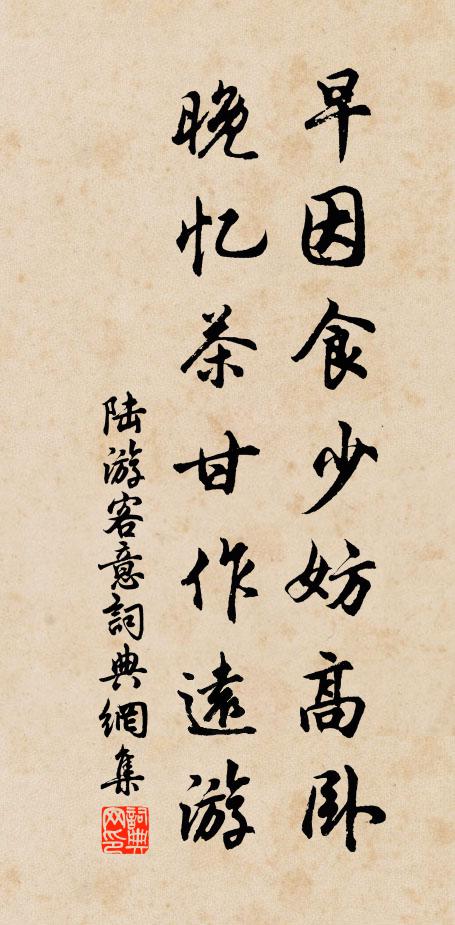 早因食少妨高卧
晚忆茶甘作遠游
陆游客意詞典網集
詞典網印